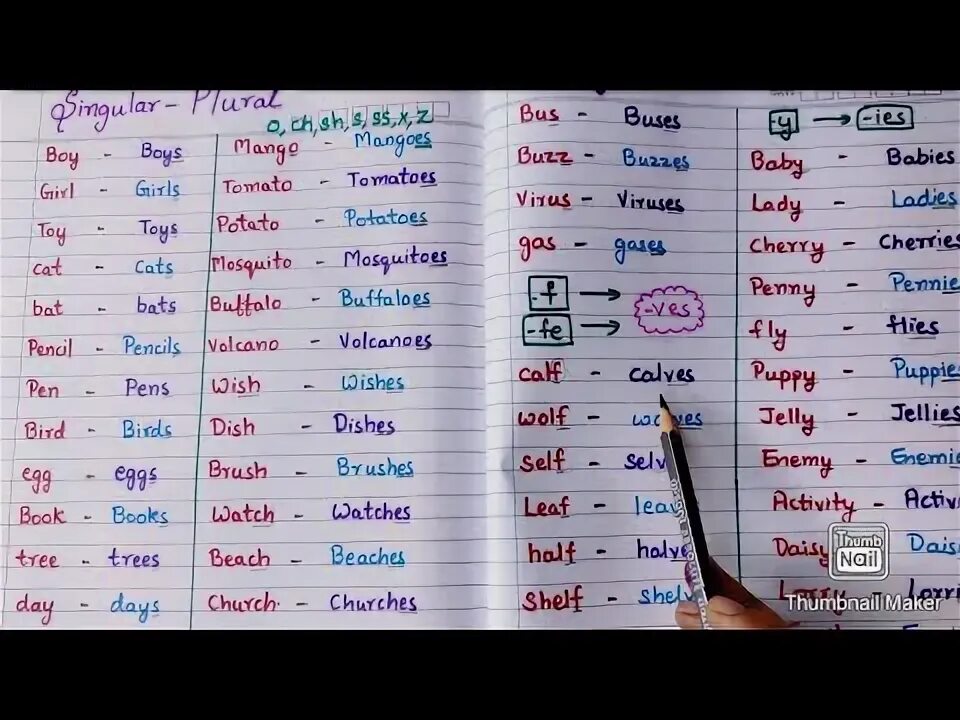 Singular - Plural
Boy - Boys
Girl - Girls
Toy - Toys
cat - Cats
bat - bats
Pencil - Pencils
Pen - Pens
Bird - Birds
egg - eggs
Book - Books
tree - trees
day - days
o, ch, sh, s, ss, x, z
Mango - Mangoes
Tomato - Tomatoes
Potato - Potatoes
Mosquito - Mosquitoes
Buffalo - Buffaloes
Volcano - Volcanoes
Wish - Wishes
Dish - Dishes
Brush - Brushes
Watch - Watches
Beach - Beaches
Church - Churches
Bus - Buses
Buzz - Buzzes
Virus - Viruses
gas - gases
-f → -ves
-fe →
calf - calves
wolf - wolves
self - selv
Leaf - leav
half - halve
Shelf - shelv
-y → -ies
Baby - Babies
Lady - Ladies
Cherry - Cherries
Penny - Pennie
fly - flies
Puppy - Puppie
Jelly - Jellies
Enemy - Enemie
Activity - Activ
Daisy - Dais
Lorry - Lorri
Thumb
Nail
Thumbnail Maker